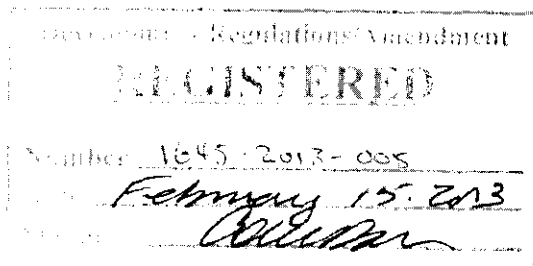 Regulations/Amendment
REGISTERED
Number 1645-2013-005
February 15. 2013